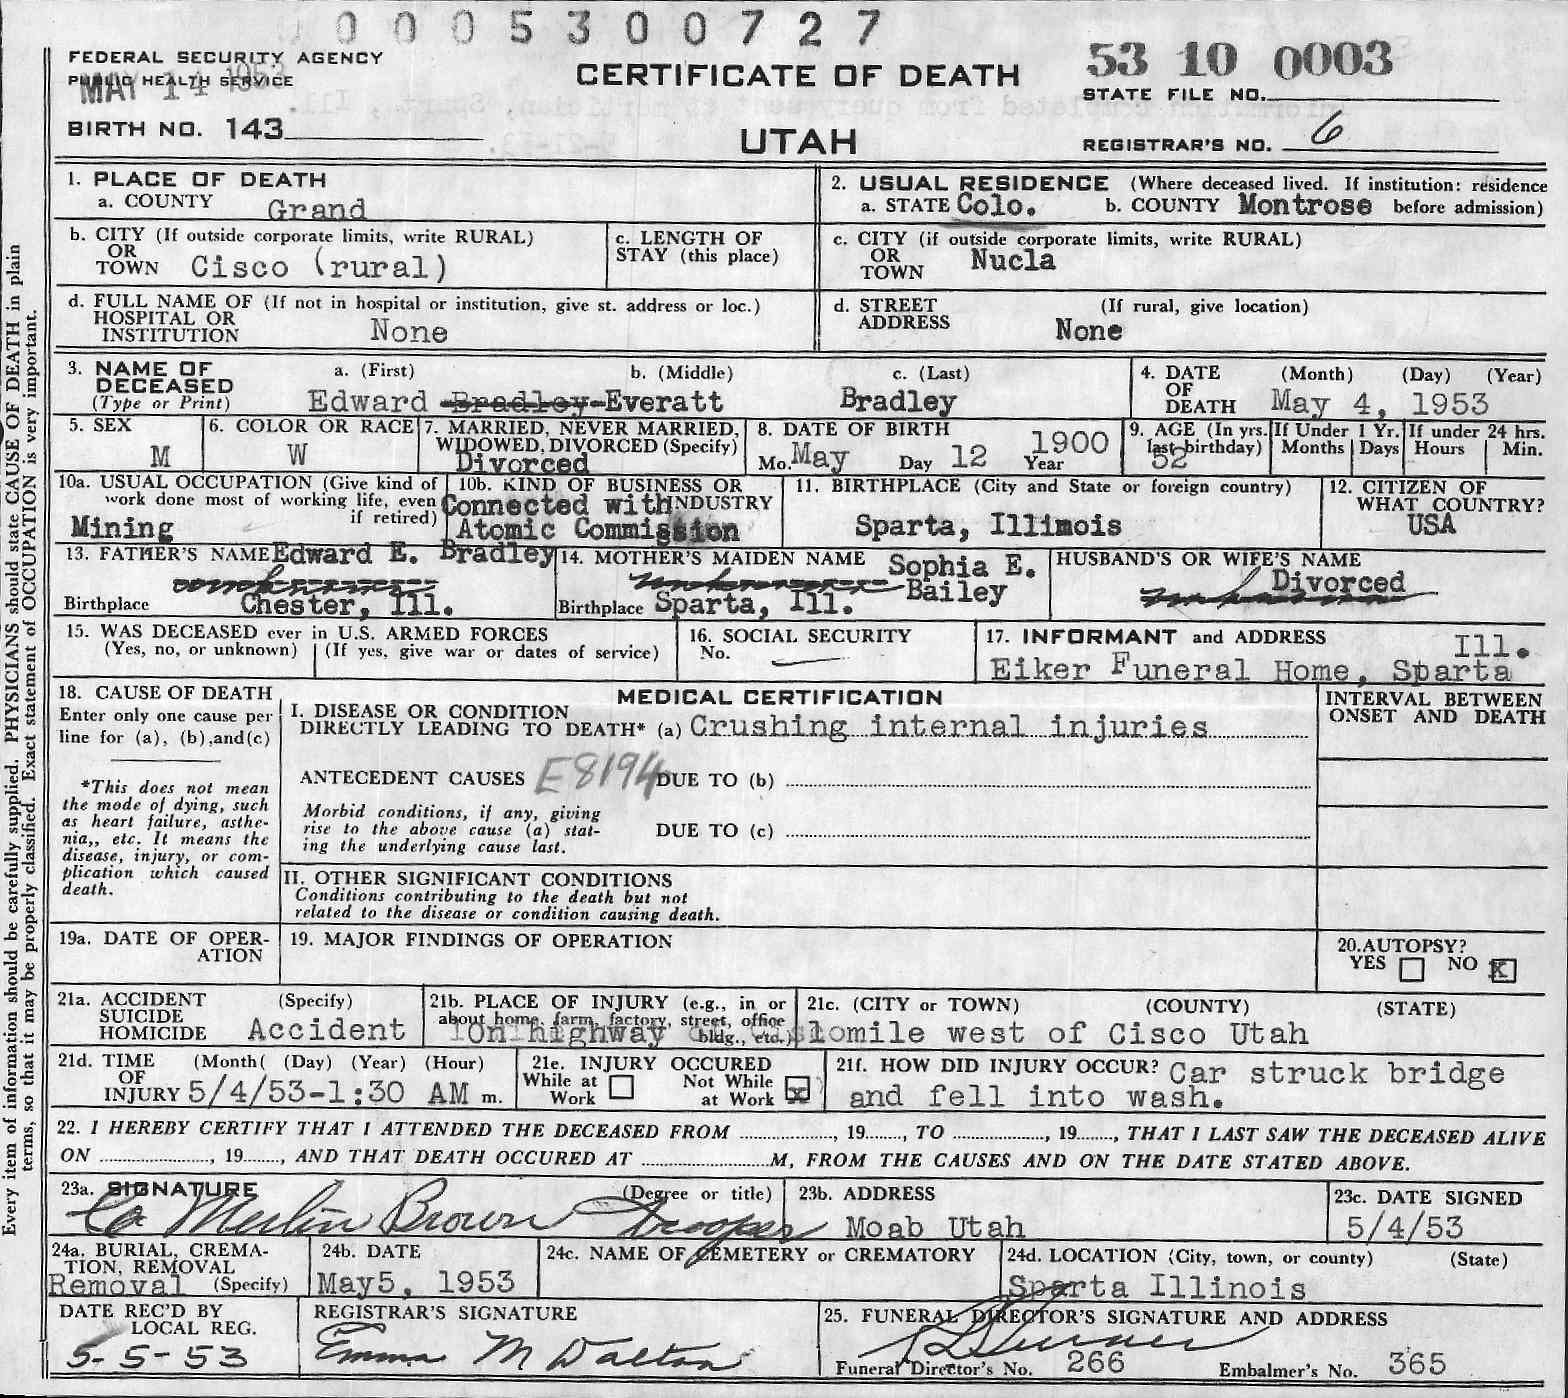 0 0 0 5 3 0 0 7 2 7
FEDERAL SECURITY AGENCY
PUBLIC HEALTH SERVICE
MAY 14 195
CERTIFICATE OF DEATH
53 10 0003
STATE FILE NO.
BIRTH NO. 143
UTAH
REGISTRAR'S NO. 6
Every item of information should be carefully supplied. PHYSICIANS should state CAUSE OF DEATH in plain
terms, so that it may be properly classified. Exact statement of OCCUPATION is very important.
1. PLACE OF DEATH
a. COUNTY Grand
2. USUAL RESIDENCE (Where deceased lived. If institution: residence
a. STATE Colo. b. COUNTY Montrose before admission)
b. CITY (If outside corporate limits, write RURAL)
OR
TOWN Cisco (rural)
c. LENGTH OF
STAY (this place)
c. CITY (if outside corporate limits, write RURAL)
OR
TOWN Nucla
d. FULL NAME OF (If not in hospital or institution, give st. address or loc.)
HOSPITAL OR
INSTITUTION None
d. STREET (If rural, give location)
ADDRESS None
3. NAME OF a. (First) b. (Middle) c. (Last)
DECEASED
(Type or Print) Edward Bradley Everatt Bradley
4. DATE (Month) (Day) (Year)
OF
DEATH May 4, 1953
5. SEX
M
6. COLOR OR RACE
W
7. MARRIED, NEVER MARRIED,
WIDOWED, DIVORCED (Specify)
Divorced
8. DATE OF BIRTH
Mo. May Day 12 Year 1900
9. AGE (In yrs.
last birthday)
52
If Under 1 Yr.
Months Days
If under 24 hrs.
Hours Min.
10a. USUAL OCCUPATION (Give kind of
work done most of working life, even
if retired)
Mining
10b. KIND OF BUSINESS OR
INDUSTRY
Connected with
Atomic Commission
11. BIRTHPLACE (City and State or foreign country)
Sparta, Illinois
12. CITIZEN OF
WHAT COUNTRY?
USA
13. FATHER'S NAME Edward E. Bradley
unknown
Birthplace Chester, Ill.
14. MOTHER'S MAIDEN NAME Sophia E.
unknown Bailey
Birthplace Sparta, Ill.
HUSBAND'S OR WIFE'S NAME
Divorced
unknown
15. WAS DECEASED ever in U.S. ARMED FORCES
(Yes, no, or unknown) (If yes, give war or dates of service)
16. SOCIAL SECURITY
No.
17. INFORMANT and ADDRESS Ill.
Eiker Funeral Home, Sparta
18. CAUSE OF DEATH
Enter only one cause per
line for (a), (b),and(c)
*This does not mean
the mode of dying, such
as heart failure, asthe-
nia,, etc. It means the
disease, injury, or com-
plication which caused
death.
MEDICAL CERTIFICATION
I. DISEASE OR CONDITION
DIRECTLY LEADING TO DEATH* (a) Crushing internal injuries
ANTECEDENT CAUSES E8194 DUE TO (b)
Morbid conditions, if any, giving
rise to the above cause (a) stat-
ing the underlying cause last.
DUE TO (c)
II. OTHER SIGNIFICANT CONDITIONS
Conditions contributing to the death but not
related to the disease or condition causing death.
INTERVAL BETWEEN
ONSET AND DEATH
19a. DATE OF OPER-
ATION
19. MAJOR FINDINGS OF OPERATION
20. AUTOPSY?
YES NO X
21a. ACCIDENT (Specify)
SUICIDE
HOMICIDE Accident
21b. PLACE OF INJURY (e.g., in or
about home, farm, factory, street, office
bldg., etc.)
On highway
21c. (CITY or TOWN) (COUNTY) (STATE)
1omile west of Cisco Utah
21d. TIME (Month( (Day) (Year) (Hour)
OF
INJURY 5/4/53-1:30 AM m.
21e. INJURY OCCURED
While at Work Not While at Work x
21f. HOW DID INJURY OCCUR? Car struck bridge
and fell into wash.
22. I HEREBY CERTIFY THAT I ATTENDED THE DECEASED FROM , 19 , TO , 19 , THAT I LAST SAW THE DECEASED ALIVE
ON , 19 , AND THAT DEATH OCCURED AT M, FROM THE CAUSES AND ON THE DATE STATED ABOVE.
23a. SIGNATURE (Degree or title)
Merlin Brown Trooper
23b. ADDRESS
Moab Utah
23c. DATE SIGNED
5/4/53
24a. BURIAL, CREMA-
TION, REMOVAL
Removal (Specify)
24b. DATE
May5, 1953
24c. NAME OF CEMETERY or CREMATORY
24d. LOCATION (City, town, or county) (State)
Sparta Illinois
DATE REC'D BY
LOCAL REG.
5-5-53
REGISTRAR'S SIGNATURE
Emma M Dalton
25. FUNERAL DIRECTOR'S SIGNATURE AND ADDRESS
Funeral Director's No. 266 Embalmer's No. 365